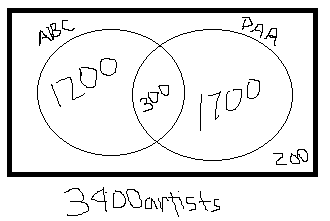 ABC PAA
1200 300 1700
200
3400 artists